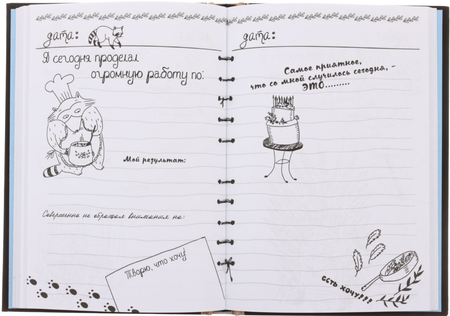 дата:
Я сегодня проделал
огромную работу по:
Мой результат:
Совершенно не обращал внимания на:
Творю, что хочу!
дата:
Самое приятное,
что со мной случилось сегодня, -
это.........
есть хочуррр